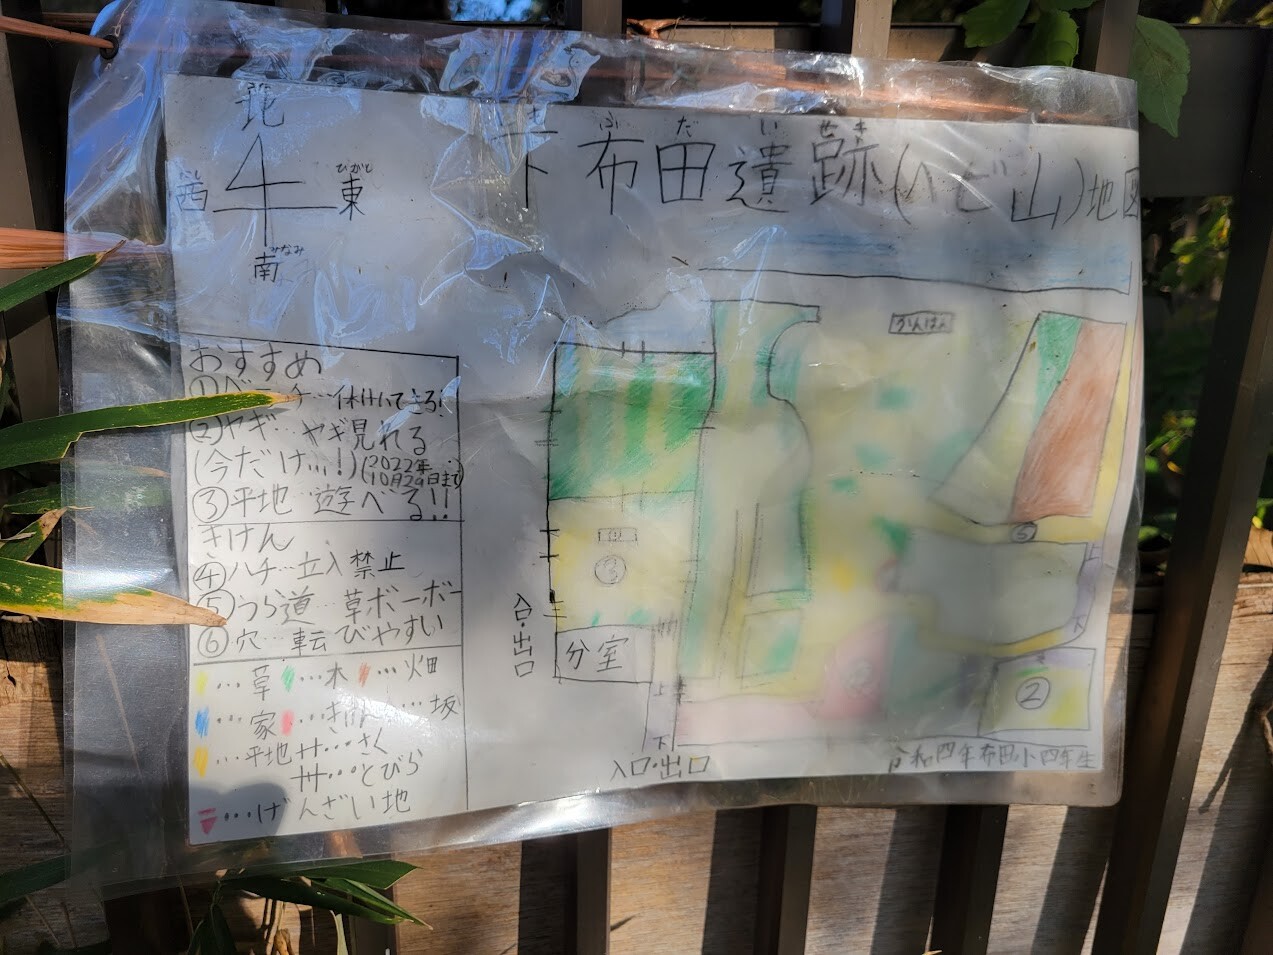 下布田遺跡(ヘビ山)地図
ふだいせき
北
西
東
ひがし
南
みなみ
おすすめ
①ベンチ…休けいできる!
②ヤギ…ヤギ見れる
(今だけ…!)(2022年10月29日まで)
③平地…遊べる!!
きけん
④ハチ…立入禁止
⑤つら道…草ボーボー
⑥穴…転びやすい
…草 …木 …畑
…家 …きけん …坂
…平地 サ…さく
…とびら
…げんざい地
かんばん
③
⑤
②
分室
入口・出口
入口・出口
上
下
上
下
令和四年布田小四年生